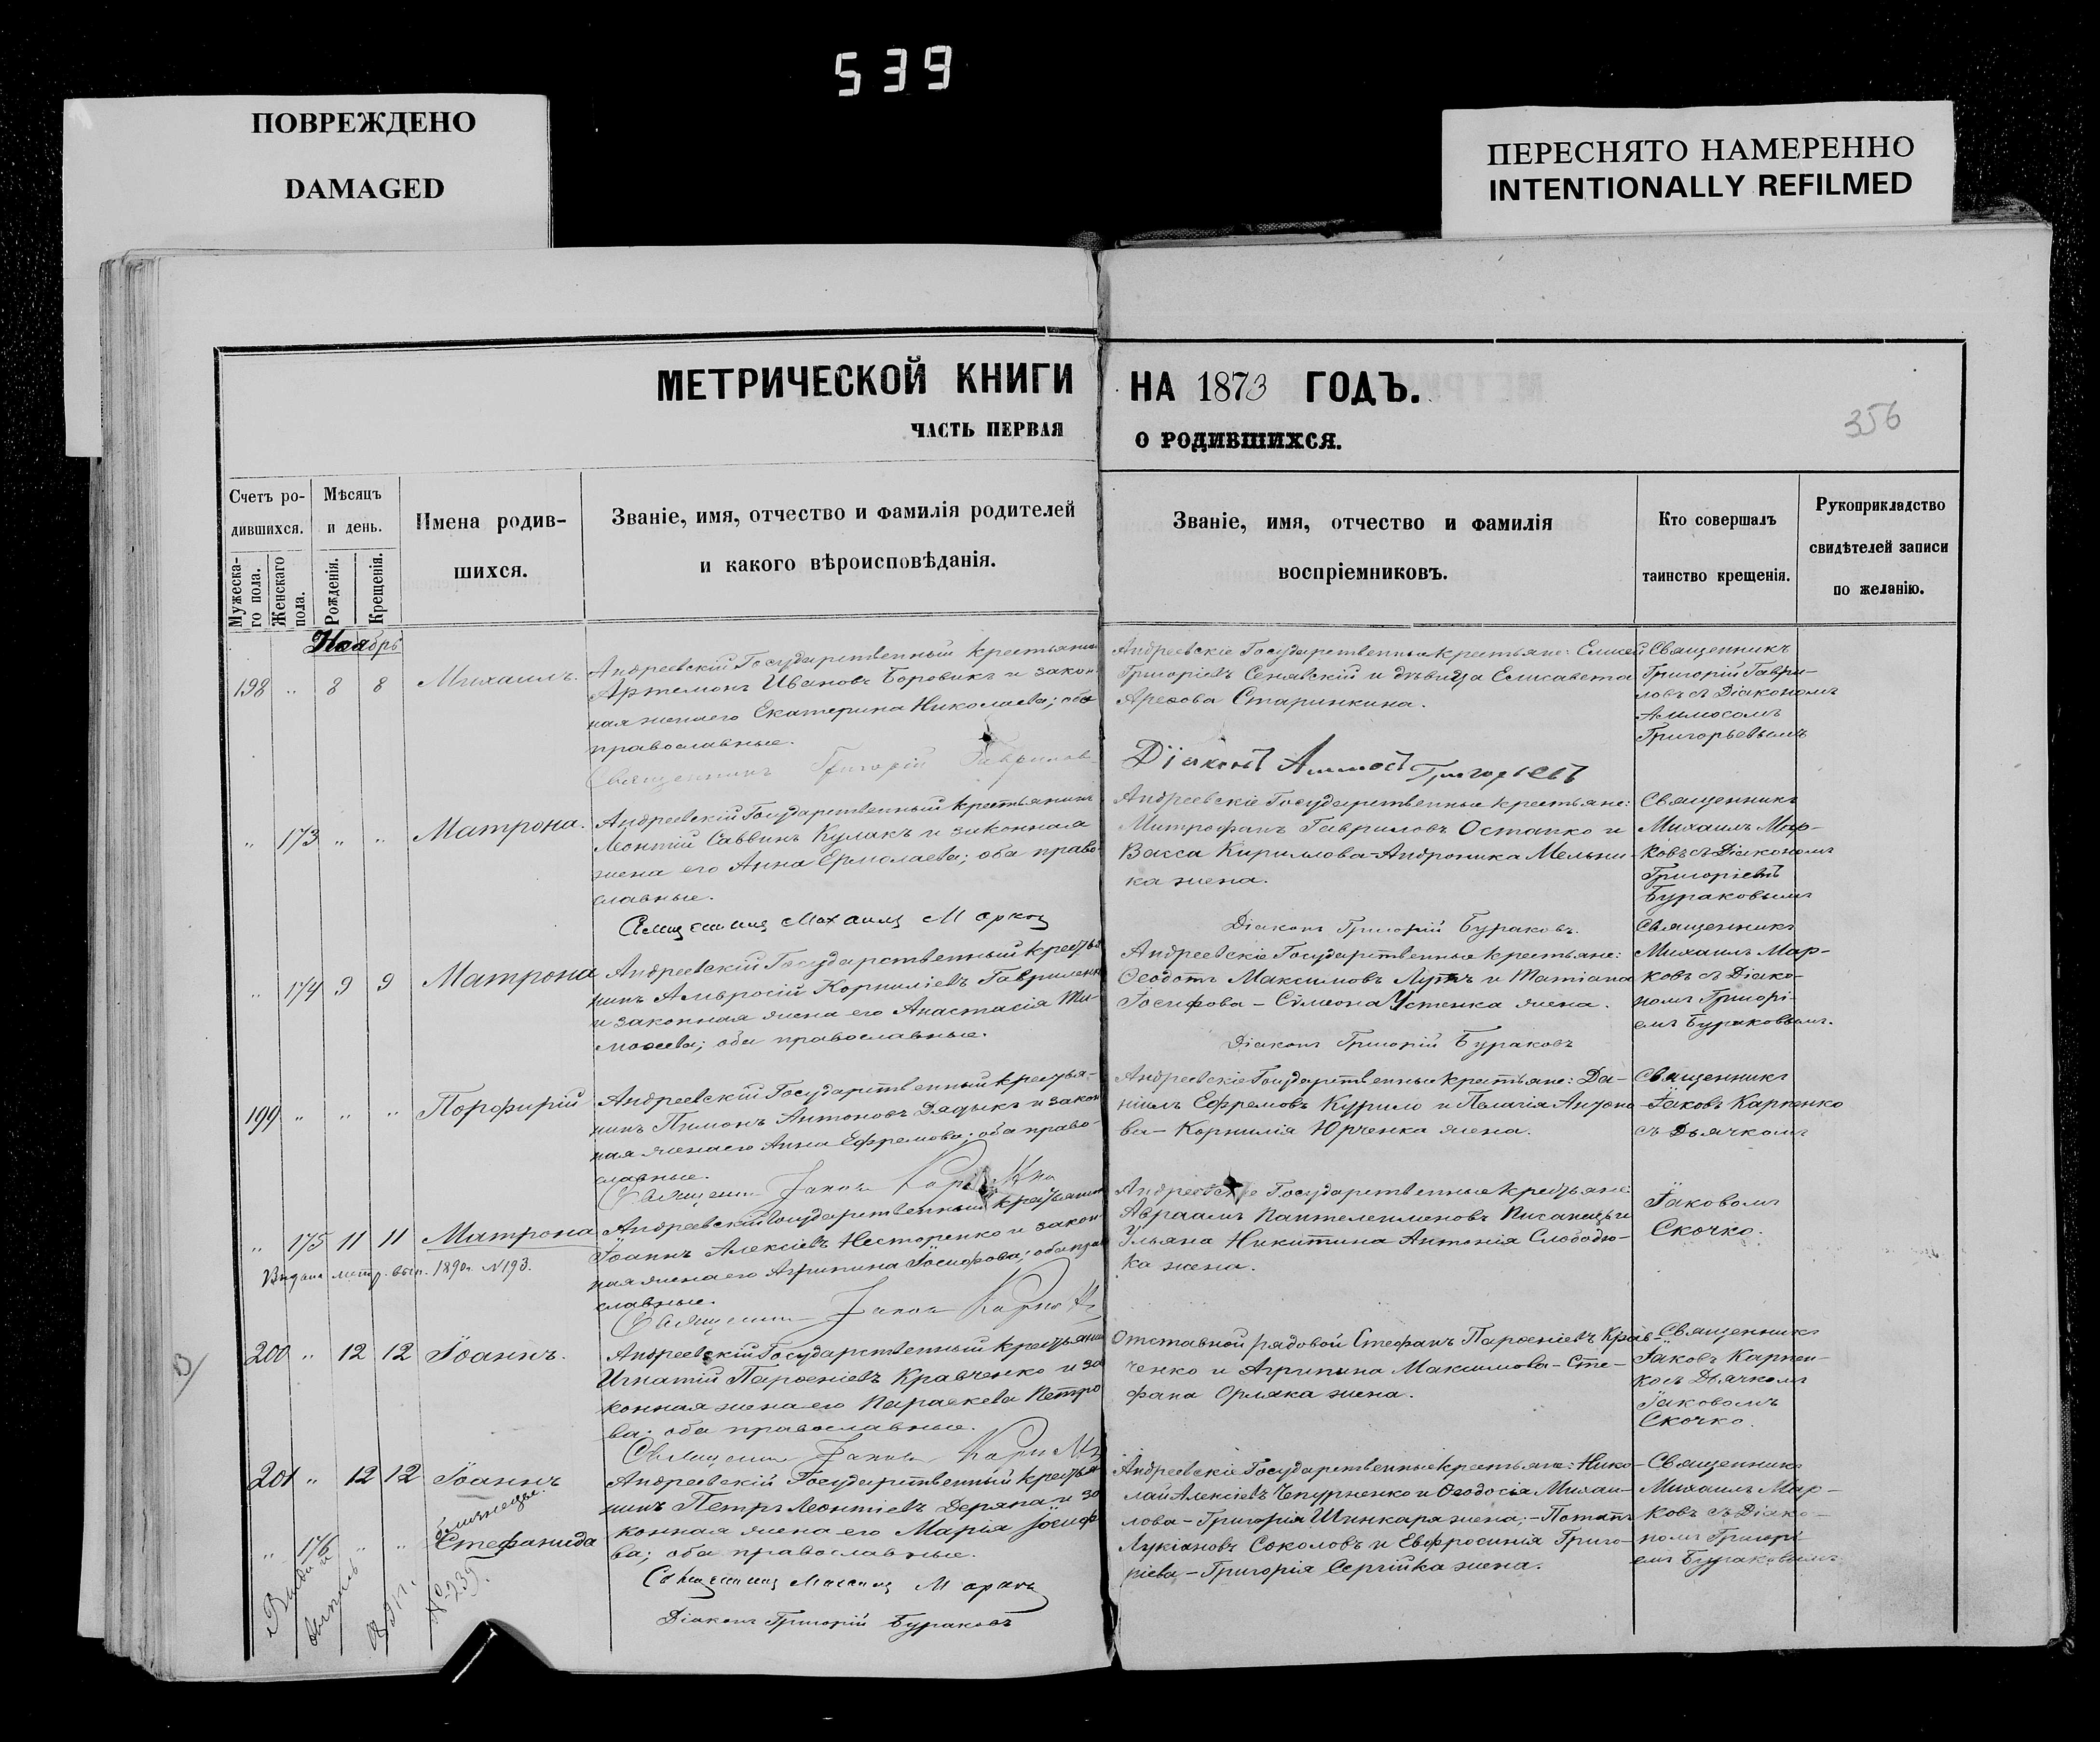 539
ПОВРЕЖДЕНО
DAMAGED
ПЕРЕСНЯТО НАМЕРЕННО
INTENTIONALLY REFILMED
МЕТРИЧЕСКОЙ КНИГИ НА 1873 ГОДЪ.
ЧАСТЬ ПЕРВАЯ О РОДИВШИХСЯ.
356
Счетъ ро-
дившихся.
Мужеска-
го пола.
Женскаго
пола.
Мѣсяцъ
и день.
Рожденія.
Крещенія.
Имена родив-
шихся.
Званіе, имя, отчество и фамилія родителей
и какого вѣроисповѣданія.
Званіе, имя, отчество и фамилія
воспріемниковъ.
Кто совершалъ
таинство крещенія.
Рукоприкладство
свидѣтелей записи
по желанію.
Ноябрь
198 " 8 8 Михаилъ.
Андреевскій Государственный крестьянин
Артемонъ Ивановъ Боровикъ и закон
ная жена его Екатерина Николаева; оба
православные.
Священникъ Григорій Гавриловъ
Андреевскіе Государственные крестьяне: Елисей
Григоріевъ Сенявскій и дѣвица Елисавета
Арефова Старинкина.
Діаконъ Аммосъ Григорьевъ
Священникъ
Григорій Гаври-
ловъ съ Діакономъ
Аммосомъ
Григорьевымъ
" 173 " " Матрона.
Андреевскій Государственный крестьянинъ
Леонтій Саввинъ Кулакъ и законная
жена его Анна Ермолаева; оба право-
славные.
Священникъ Михаилъ Марковъ
Андреевскіе Государственные крестьяне:
Митрофанъ Гавриловъ Остапко и
Васса Кириллова-Андроника Мельни-
ка жена.
Діаконъ Григорій Бураковъ.
Священникъ
Михаилъ Мар-
ковъ съ Діакономъ
Григоріемъ
Бураковымъ
" 174 9 9 Матрона
Андреевскій Государственный крестья
нинъ Амвросій Корниліевъ Гавриленк
и законная жена его Анастасія Ти-
мофеева; оба православные.
Андреевскіе Государственные крестьяне:
Феодотъ Максимовъ Лутъ и Татіана
Іосифова - Симеона Устенка жена.
Діаконъ Григорій Бураковъ
Священникъ
Михаилъ Мар-
ковъ съ Діако-
номъ Григорі-
емъ Бураковымъ.
199 " " " Порфирій
Андреевскій Государственный крестья-
нинъ Пимонъ Антоновъ Дядыкъ и закон
ная жена его Анна Ефремова; оба право-
славные.
Священникъ Іаковъ
Андреевскіе Государственные крестьяне: Да-
ніилъ Ефремовъ Курило и Пелагія Антоно-
ва - Корнилія Юрченка жена.
Священникъ
Іаковъ Карпенко
съ Дьячкомъ
" 175 11 11 Матрона
Выдана метр. вып. 1890г. №193.
Андреевскій Государственный крестьянин
Іоаннъ Алексіевъ Несторенко и закон
ная жена его Агрипина Іосифова; оба пра
славные.
Священникъ Іаковъ
Андреевскіе Государственные крестьяне
Авраамъ Пантелеимоновъ Писанецъ и
Ульяна Никитина Антонія Слободю-
ка жена.
Іаковомъ
Скочко.
200 " 12 12 Іоаннъ.
Андреевскій Государственный крестьянин
Игнатій Парфеніевъ Кравченко и за
конная жена его Параскева Петро
ва; оба православные.
Священникъ Іаковъ
Отставной рядовой Стефанъ Парфеніевъ Крав-
ченко и Агрипина Максимова - Сте-
фана Орляка жена.
Священникъ
Іаковъ Карпен-
ко съ Дьячкомъ
Іаковомъ
Скочко.
201 " 12 12 Іоаннъ
близнецы.
" 176 " " Стефанида
№239.
Андреевскій Государственный крестья
нинъ Петръ Леонтіевъ Деряпа и за
конная жена его Марія Іосифо
ва; оба православные.
Священникъ Михаилъ Марковъ
Діаконъ Григорій Бураковъ
Андреевскіе Государственные крестьяне: Нико-
лай Алексіевъ Чепурненко и Феодосія Михаи-
лова - Григорія Шинкаря жена; - Потапъ
Лукіановъ Соколовъ и Евфросинія Григо-
ріева - Григорія Сергійка жена.
Священникъ
Михаилъ Мар-
ковъ съ Діако-
номъ Григорі-
емъ Бураковымъ